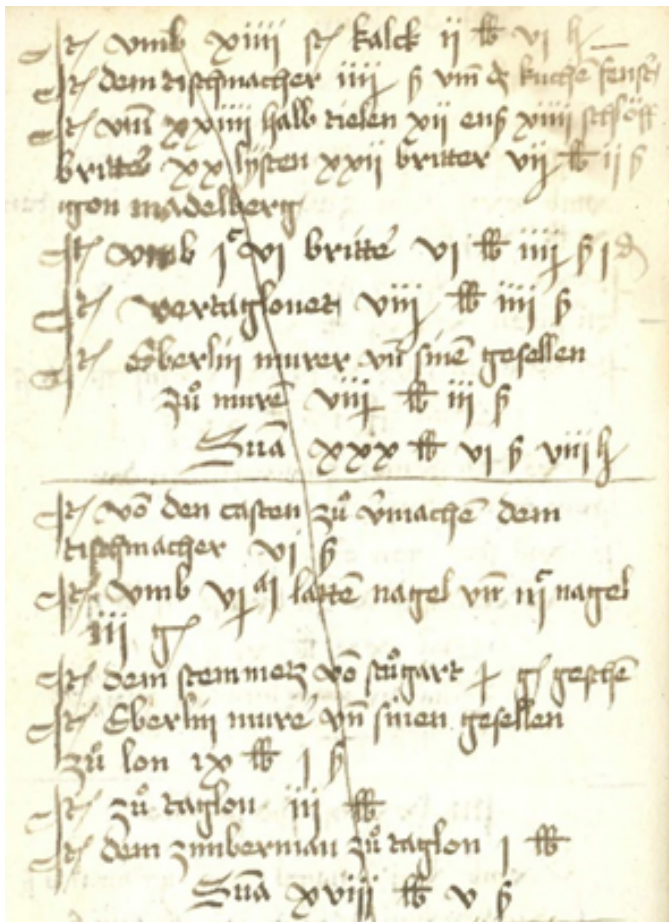 It vmb xiiii st kalck ii lb vi h
It dem tischmacher iiij ß vmb d kuchē fenster
It vmb xxiiii halb tielen xii eng xiiii schlöff
britter xx lysten xxii britter vij lb ii ß
gon madelberg
It vmb j c vi britter vi lb iiij ß j d
It vertaglonet viij lb iiii ß
It Eberlin murer vn̄ sinē gesellen
zů murē viij lb iii ß
Sūā xxx lb vi ß viii h
It vō den casten zů v̄machē dem
tischmacher vi ß
It vmb vj latte nagel vn̄ iii c nagel
iii g
It dem stemmetz vō stůgart g geschē
It Eberlin murē vn̄ sinen gesellen
zů lon ix lb j ß
It zů taglon iii lb
It dem zimberman zů taglon j lb
Sūā xviii lb v ß